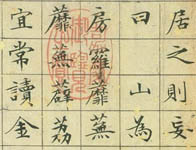 居之則妄
曰山為
房羅蘼蕪
蘼蕪薜荔
宜常讀金